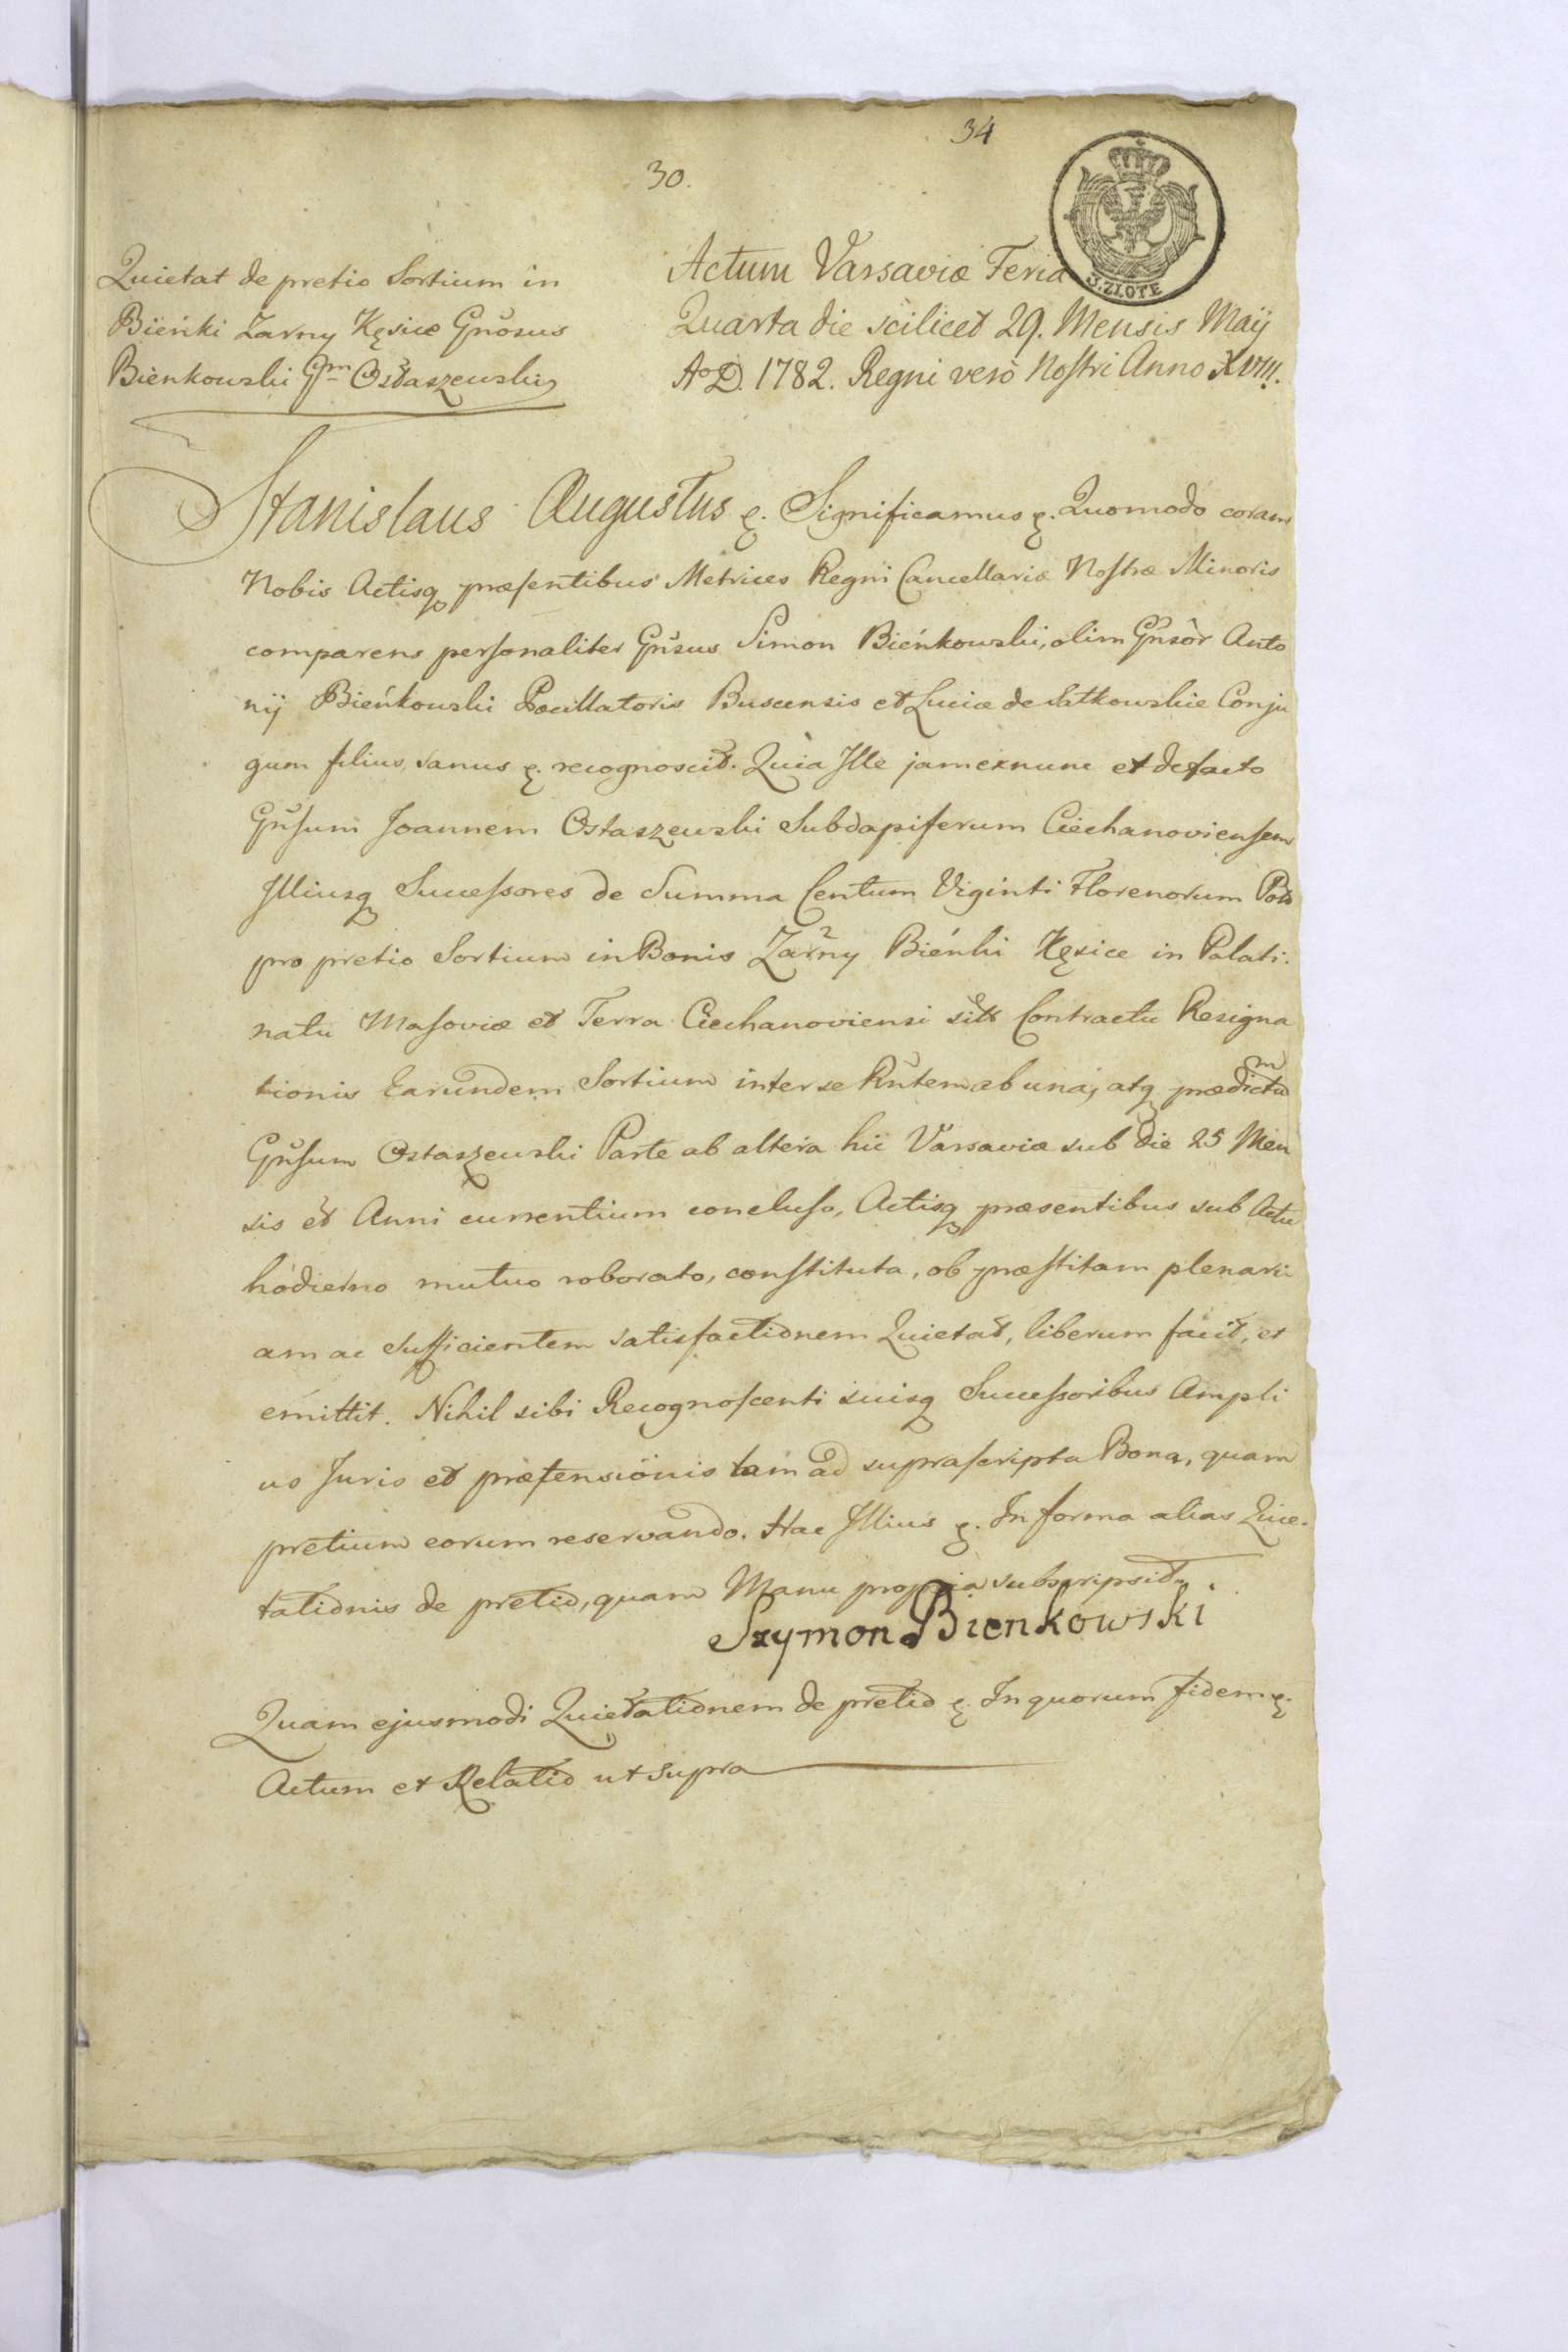 34
30.
3. ZŁOTE
Quietat de pretio Sortium in
Bieńki Zarny Kęsice Gnosus
Bieńkowski Gm Ostaszewski
Actum Varsaviæ Feria
Quarta die scilicet 29. Mensis Maij
Ao D. 1782. Regni vero Nostri Anno XVIII.
Stanislaus Augustus &. Significamus &. Quomodo coram
Nobis Actisq præsentibus Metrices Regni Cancellariæ Nostræ Minoris
comparens personaliter Gnsus Simon Bieńkowski, olim Gnsor Anto
nij Bieńkowski Pocillatoris Buscensis et Luciæ de Szatkowskie Conju
gum filius, sanus &. recognoscit. Quia Ille jam exnunc et defacto
Gnsum Joannem Ostaszewski Subdapiferum Ciechanoviensem
Illiusq Successores de Summa Centum Viginti Florenorum Pol
pro pretio Sortium in Bonis Zarny Bieńki Kęsice in Palati.
natu Masoviæ et Terra Ciechanoviensi sit Contractu Resigna
tionis Earundem Sortium inter se Rntem ab una, atq prædictum
Gnsum Ostaszewski Parte ab altera hic Varsaviæ sub die 25 Men
sis et Anni currentium concluso, Actisq præsentibus sub Actu
hodierno mutuo roborato, constituta, ob præstitam plenari
am ac sufficientem satisfactionem Quietat, liberum facit, et
emittit. Nihil sibi Recognoscenti suisq Successoribus Ampli
us Juris et prætensionis tam ad suprascripta Bona, quam
pretium eorum reservando. Hac Illius &. In forma alias Quie.
tationis de pretio, quam Manu propria subscripsit.
Szymon Bienkowski
Quam ejusmodi Quietationem de pretio &. In quorum fidem &.
Actum et Relatio ut supra